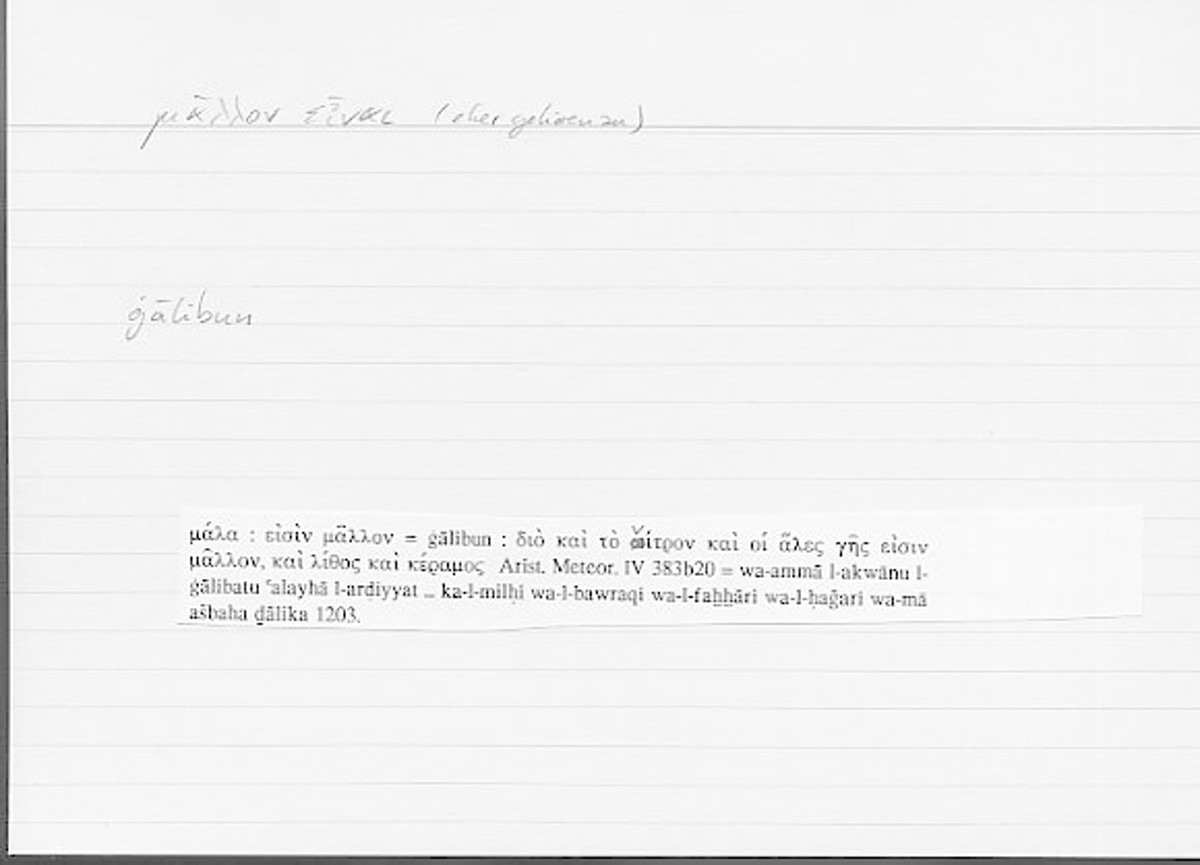 μᾶλλον εἶναι (eher gehören zu)
ġālibun
μάλα : εἰσὶν μᾶλλον = ġālibun : διὸ καὶ τὸ νίτρον καὶ οἱ ἅλες γῆς εἰσιν
μᾶλλον, καὶ λίθος καὶ κέραμος Arist. Meteor. IV 383b20 = wa-ammā l-akwānu l-
ġālibatu ʿalayhā l-arḍiyyat _ ka-l-milḥi wa-l-bawraqi wa-l-faḫḫāri wa-l-ḥaǧari wa-mā
ašbaha ḏālika 1203.